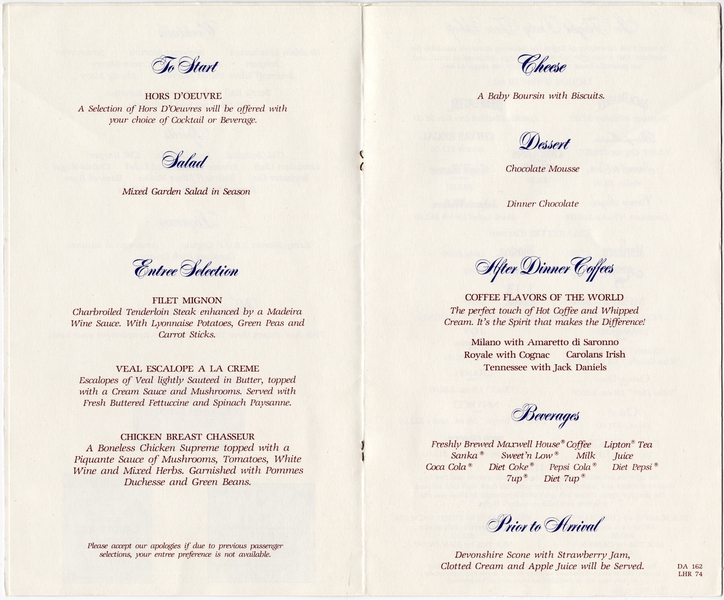 To Start
HORS D'OEUVRE
A Selection of Hors D'Oeuvres will be offered with
your choice of Cocktail or Beverage.
Salad
Mixed Garden Salad in Season
Entree Selection
FILET MIGNON
Charbroiled Tenderloin Steak enhanced by a Madeira
Wine Sauce. With Lyonnaise Potatoes, Green Peas and
Carrot Sticks.
VEAL ESCALOPE A LA CREME
Escalopes of Veal lightly Sauteed in Butter, topped
with a Cream Sauce and Mushrooms. Served with
Fresh Buttered Fettuccine and Spinach Paysanne.
CHICKEN BREAST CHASSEUR
A Boneless Chicken Supreme topped with a
Piquante Sauce of Mushrooms, Tomatoes, White
Wine and Mixed Herbs. Garnished with Pommes
Duchesse and Green Beans.
Please accept our apologies if due to previous passenger
selections, your entree preference is not available.
Cheese
A Baby Boursin with Biscuits.
Dessert
Chocolate Mousse
Dinner Chocolate
After Dinner Coffees
COFFEE FLAVORS OF THE WORLD
The perfect touch of Hot Coffee and Whipped
Cream. It's the Spirit that makes the Difference!
Milano with Amaretto di Saronno
Royale with Cognac Carolans Irish
Tennessee with Jack Daniels
Beverages
Freshly Brewed Maxwell House® Coffee Lipton® Tea
Sanka® Sweet'n Low® Milk Juice
Coca Cola® Diet Coke® Pepsi Cola® Diet Pepsi®
7up® Diet 7up®
Prior to Arrival
Devonshire Scone with Strawberry Jam,
Clotted Cream and Apple Juice will be Served.
DA 162
LHR 74